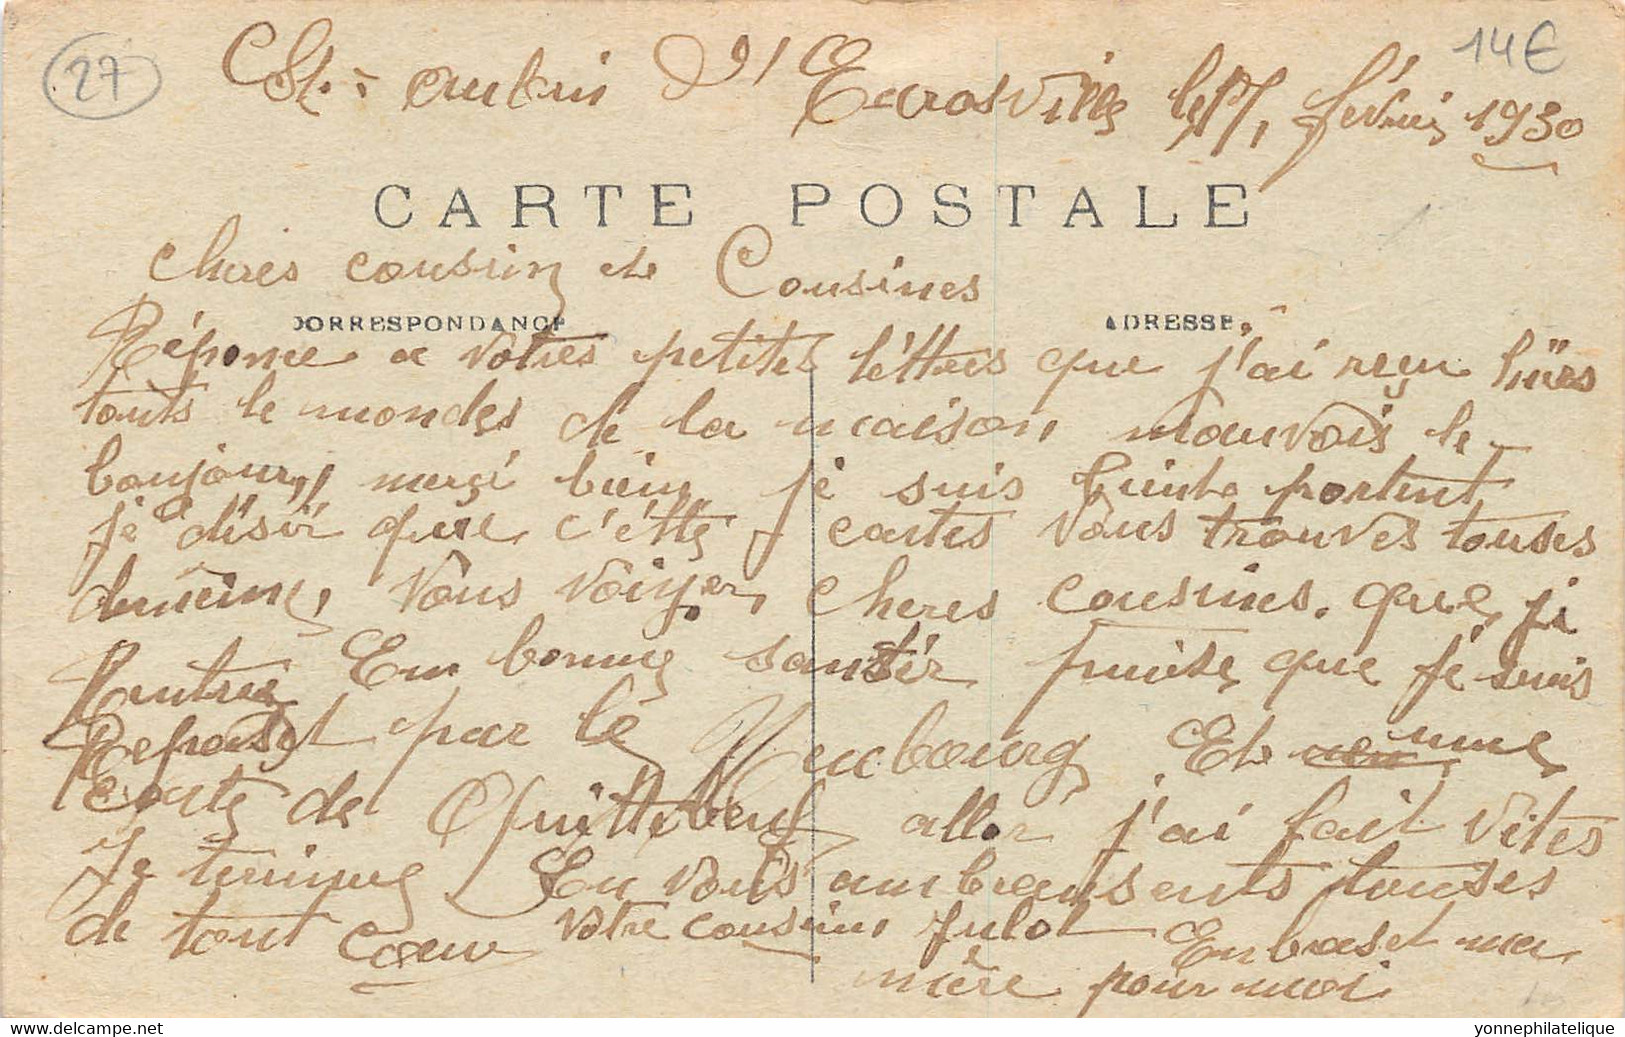 27
14€
St-aubin d'Ecrosville le 17, février 1930
CARTE POSTALE
Chères cousin et Cousines
CORRESPONDANCE
ADRESSE
Réponce a votres petites léttres que j'ai reçu hiïres
touts le mondes de la maison, mauvois le
boujour, merçi bien je suis portent
je désir que c'étte cartes vous trouves touses
demeime, vous voiyer, cheres cousines. que je
Rentrée En bonne santér puiste que jé suis
Repasset par lé Neubourg Et unne
conte de Quittebeuf allér j'ai fait vites
Je terminue En vous ambrensents toutses
de tout cœur votre cousin julot Enbraset ma
mère pour moi
yonnephilatelique